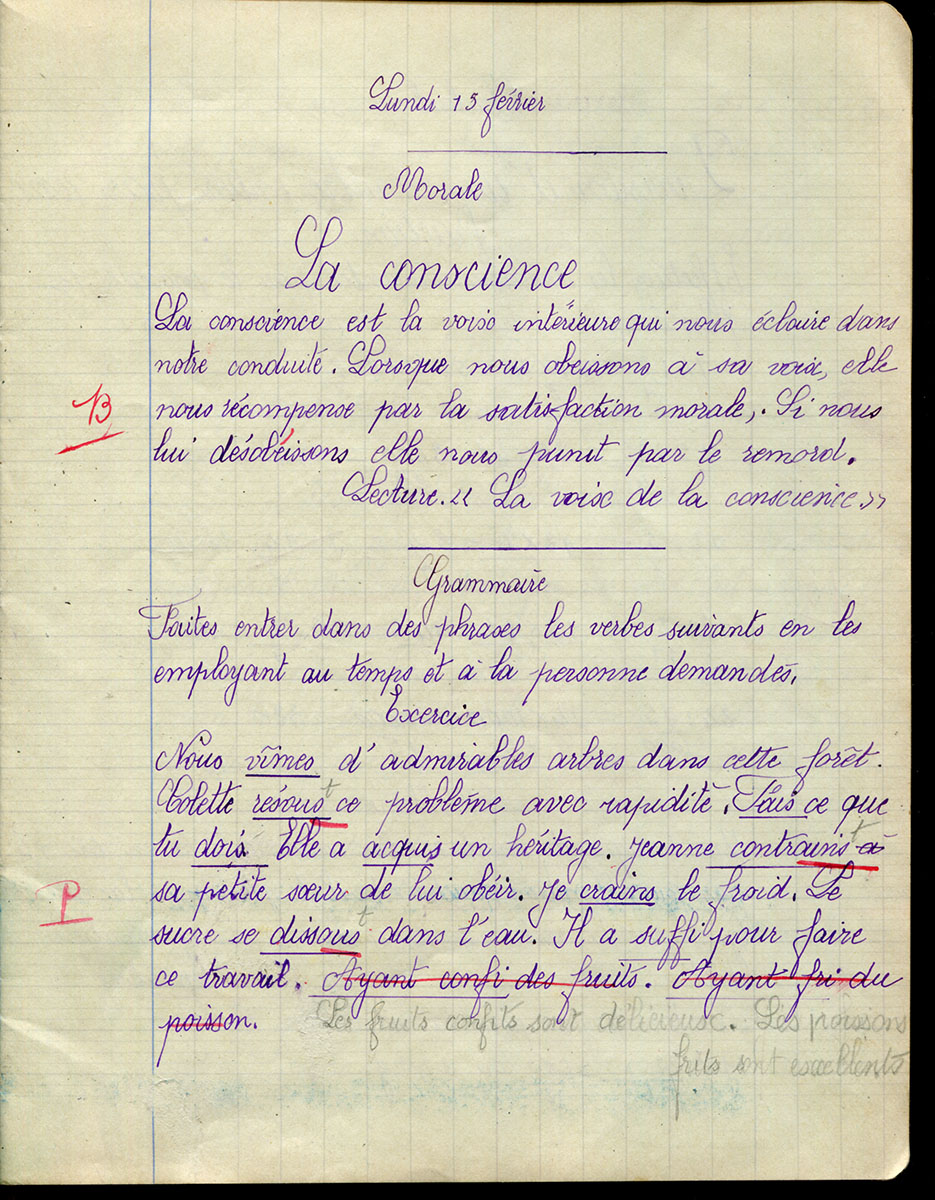 Lundi 15 février
Morale
La conscience
La conscience est la voix intérieure qui nous éclaire dans
notre conduite. Lorsque nous obeissons à sa voix, elle
B
nous récompense par la satisfaction morale,. Si nous
lui désobéissons elle nous punit par le remord.
Lecture. « La voix de la conscience.»
Grammaire
Faites entrer dans des phrases les verbes suivants en les
employant au temps et à la personne demandés.
Exercice
Nous vîmes d'admirables arbres dans cette forêt.
Colette résoust ce problème avec rapidité. Fais ce que
tu dois. Elle a acquis un héritage. Jeanne contrainst à
P
sa petite sœur de lui obéir. Je crains le froid. Le
sucre se dissoust dans l'eau. Il a suffi pour faire
ce travail. Ayant confi des fruits. Ayant fri du
poisson. Les fruits confits sont délicieux. Les poissons
frits sont excellents